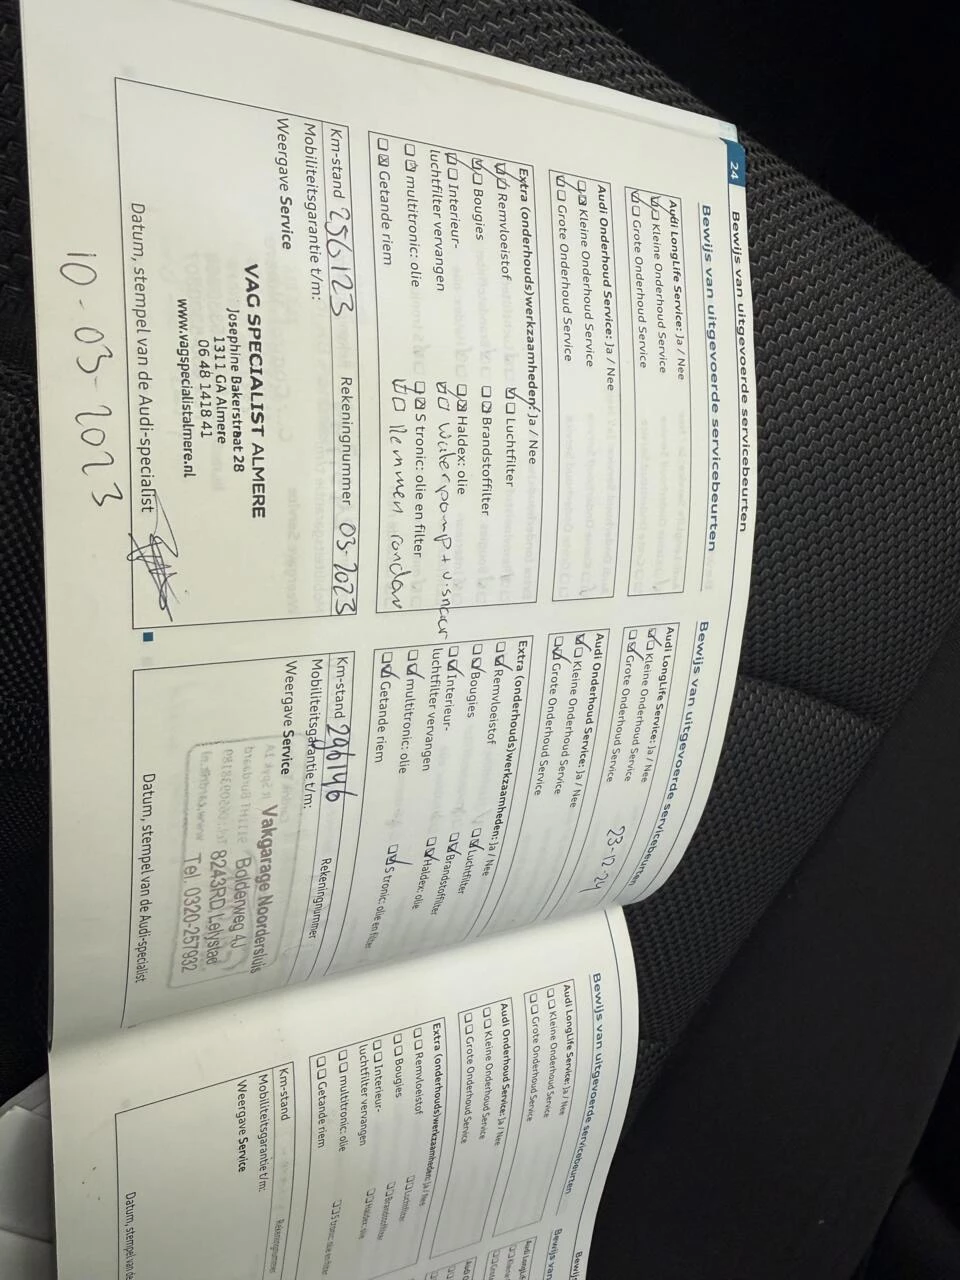 24
Bewijs van uitgevoerde servicebeurten
Bewijs van uitgevoerde servicebeurten
Audi LongLife Service: Ja / Nee
Kleine Onderhoud Service
Grote Onderhoud Service
Audi Onderhoud Service: Ja / Nee
Kleine Onderhoud Service
Grote Onderhoud Service
Extra (onderhouds)werkzaamheden: Ja / Nee
Remvloeistof
Luchtfilter
Bougies
Brandstoffilter
Interieur-
luchtfilter vervangen
Haldex: olie
Waterpomp + v.snaar
multitronic: olie
S tronic: olie en filter
Getande riem
Remmen rondom
Km-stand 256123
Rekeningnummer 03-2023
Mobiliteitsgarantie t/m:
Weergave Service
VAG SPECIALIST ALMERE
Josephine Bakerstraat 28
1311 GA Almere
06 48 1418 41
www.vagspecialistalmere.nl
Datum, stempel van de Audi-specialist
10-03-2023
Bewijs van uitgevoerde servicebeurten
Audi LongLife Service: Ja / Nee
Kleine Onderhoud Service
Grote Onderhoud Service
23-12-24
Audi Onderhoud Service: Ja / Nee
Kleine Onderhoud Service
Grote Onderhoud Service
Extra (onderhouds)werkzaamheden: Ja / Nee
Remvloeistof
Luchtfilter
Bougies
Brandstoffilter
Interieur-
luchtfilter vervangen
Haldex: olie
multitronic: olie
S tronic: olie en filter
Getande riem
Km-stand 296146
Rekeningnummer
Mobiliteitsgarantie t/m:
Weergave Service
Vakgarage Noordersluis
Bolderweg 4J
8243RD Lelystad
Tel. 0320-257932
Datum, stempel van de Audi-specialist
Bewijs van uitgevoerde servicebeurten
Audi LongLife Service: Ja / Nee
Kleine Onderhoud Service
Grote Onderhoud Service
Audi Onderhoud Service: Ja / Nee
Kleine Onderhoud Service
Grote Onderhoud Service
Extra (onderhouds)werkzaamheden: Ja / Nee
Remvloeistof
Luchtfilter
Bougies
Brandstoffilter
Interieur-
luchtfilter vervangen
Haldex: olie
multitronic: olie
S tronic: olie en filter
Getande riem
Km-stand
Rekeningnummer
Mobiliteitsgarantie t/m:
Weergave Service
Datum, stempel van de
Bewijs
Bewijs van
Audi LongL